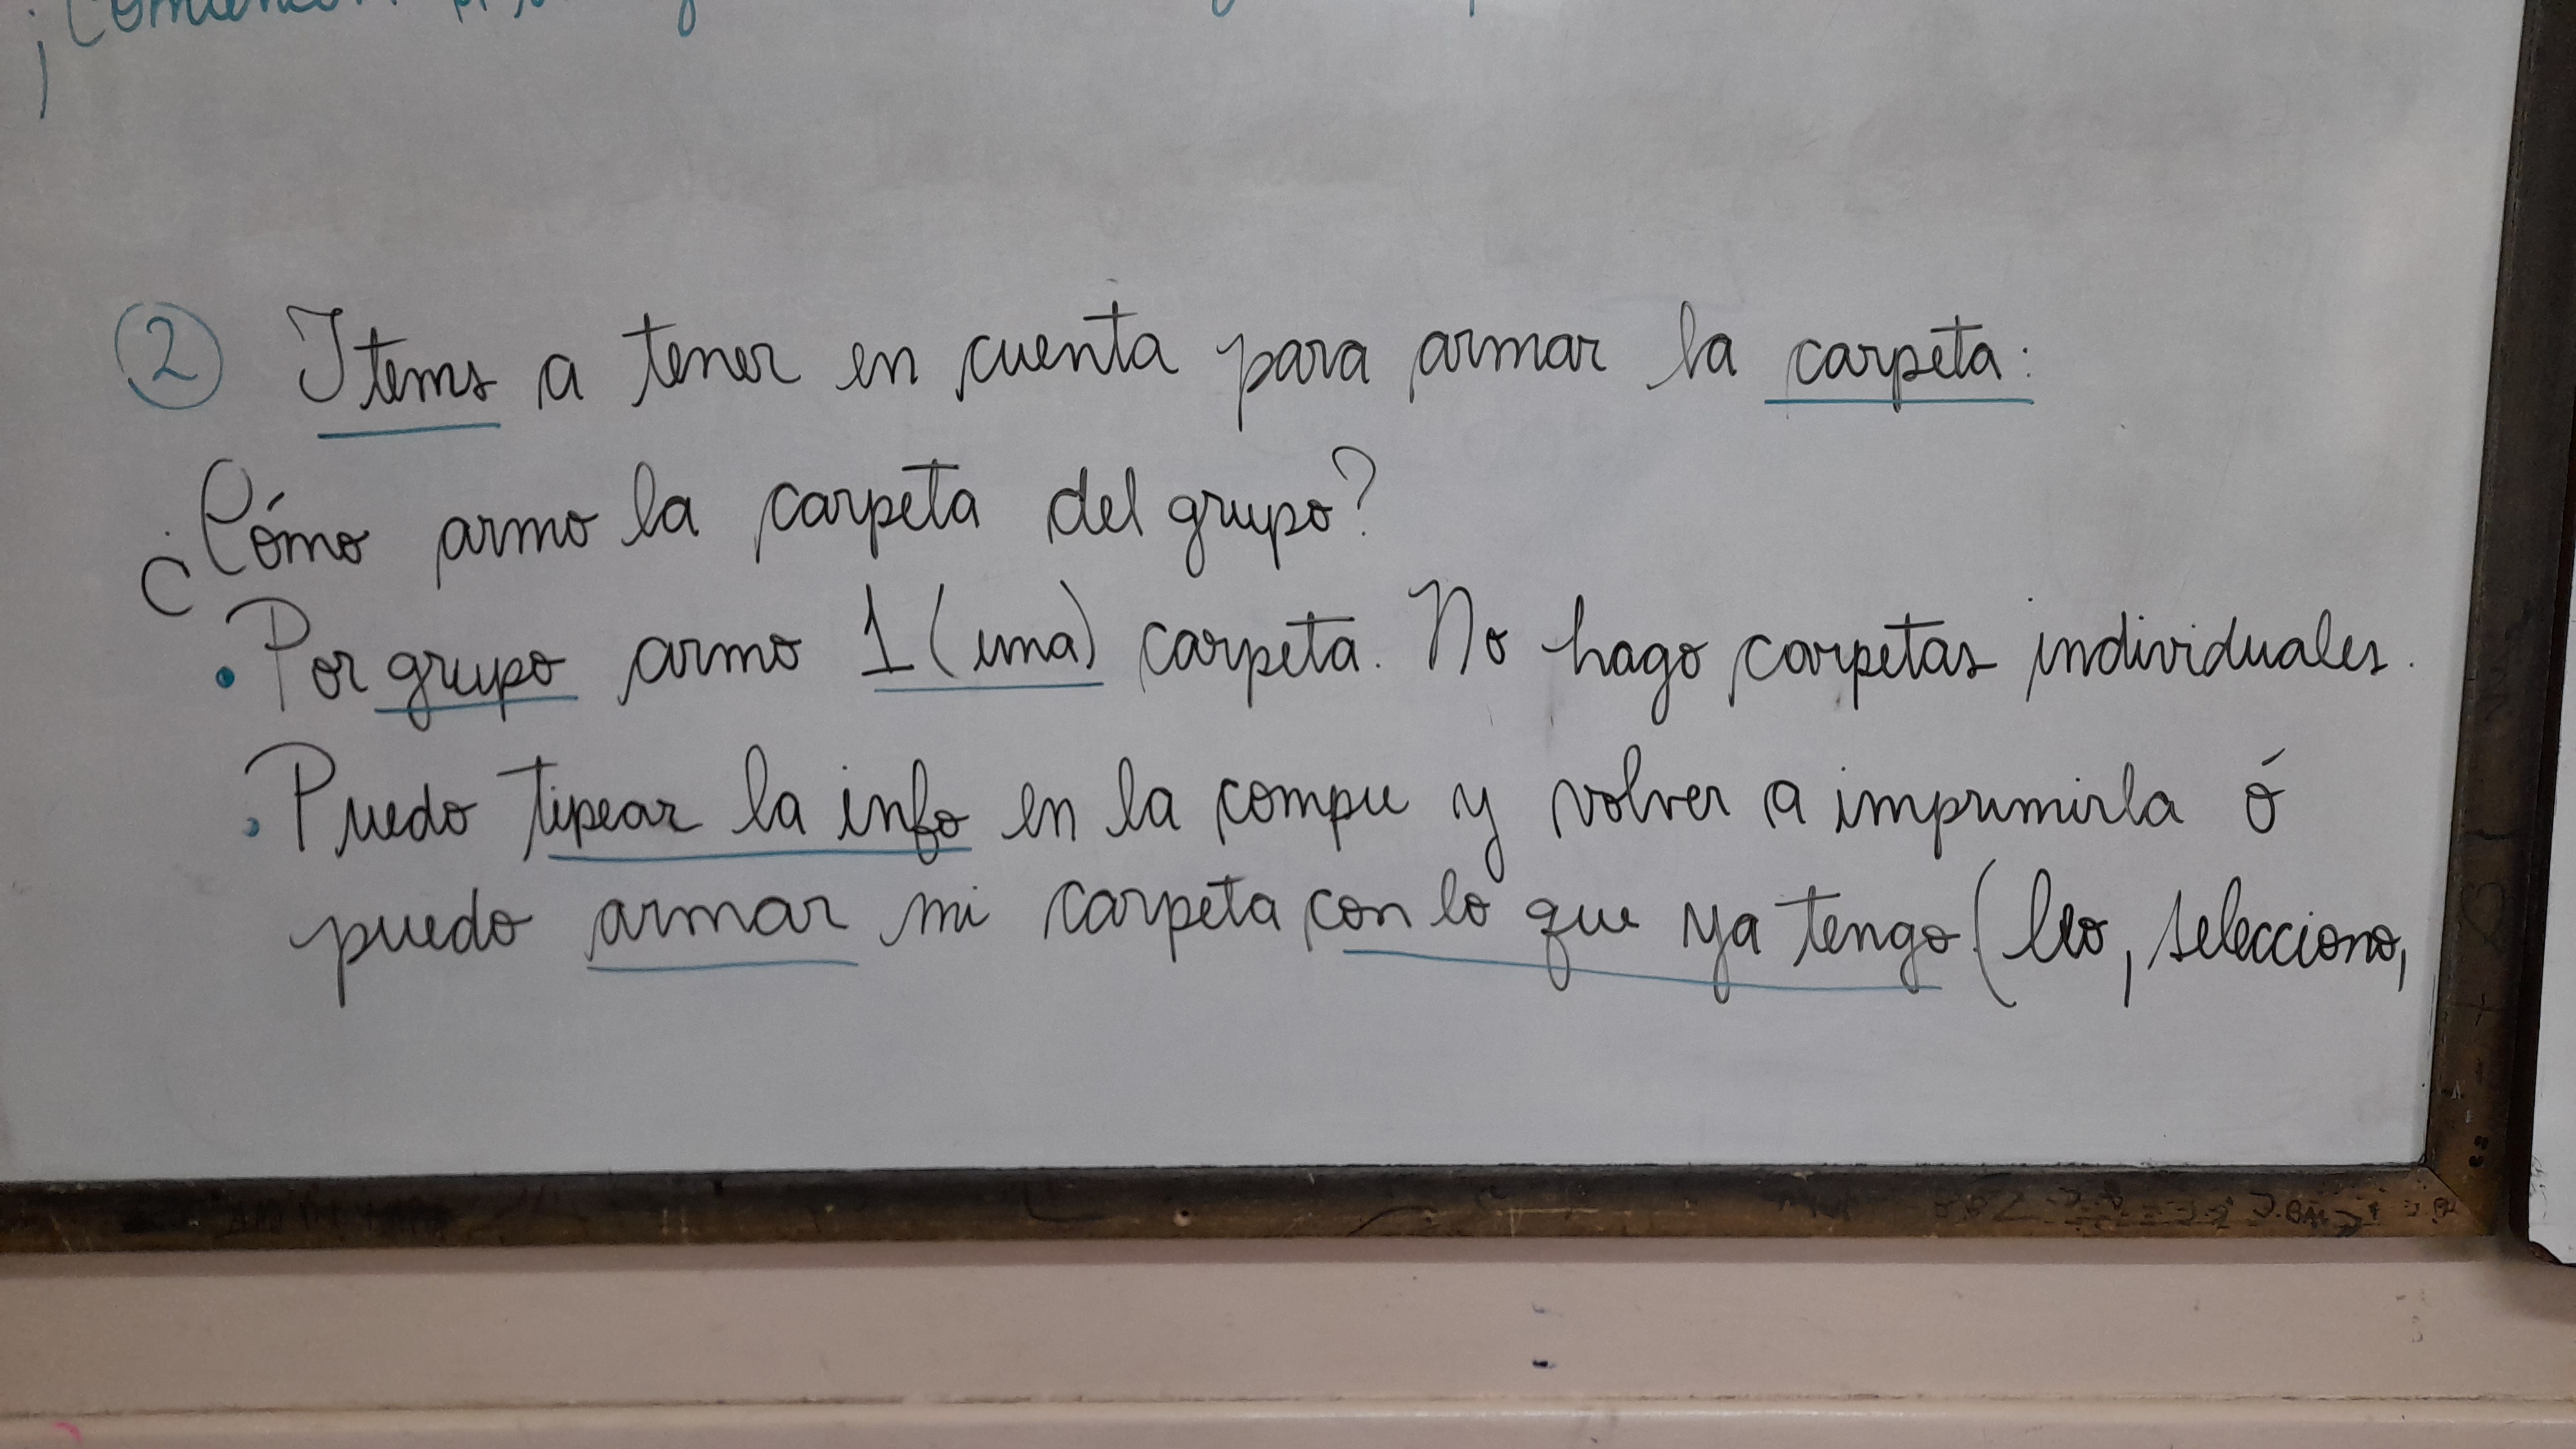 ② Items a tener en cuenta para armar la carpeta:
¿Cómo armo la carpeta del grupo?
• Por grupo armo 1 (una) carpeta. No hago carpetas individuales.
• Puedo tipear la info en la compu y volver a imprimirla ó
puedo armar mi carpeta con lo que ya tengo (leo, selecciono,